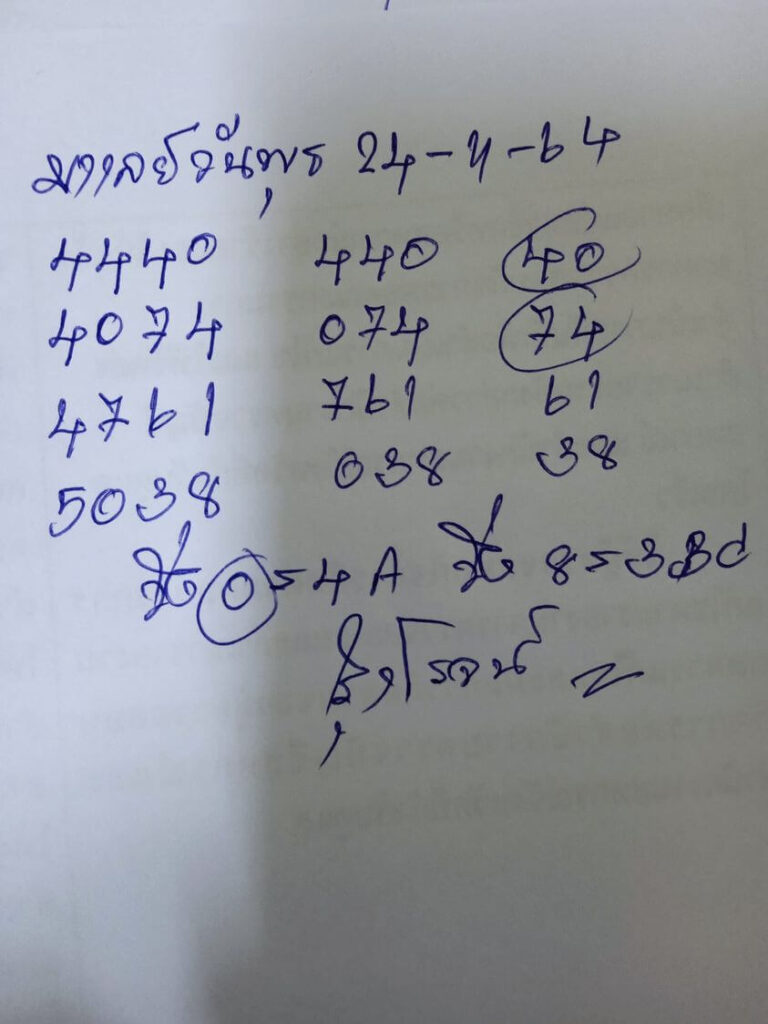 มาเลย์วันพุธ 24-11-64
4440 440 40
4074 074 74
4761 761 61
5038 038 38
วิ่ง 0=4A วิ่ง 8=3BC
โรจน์